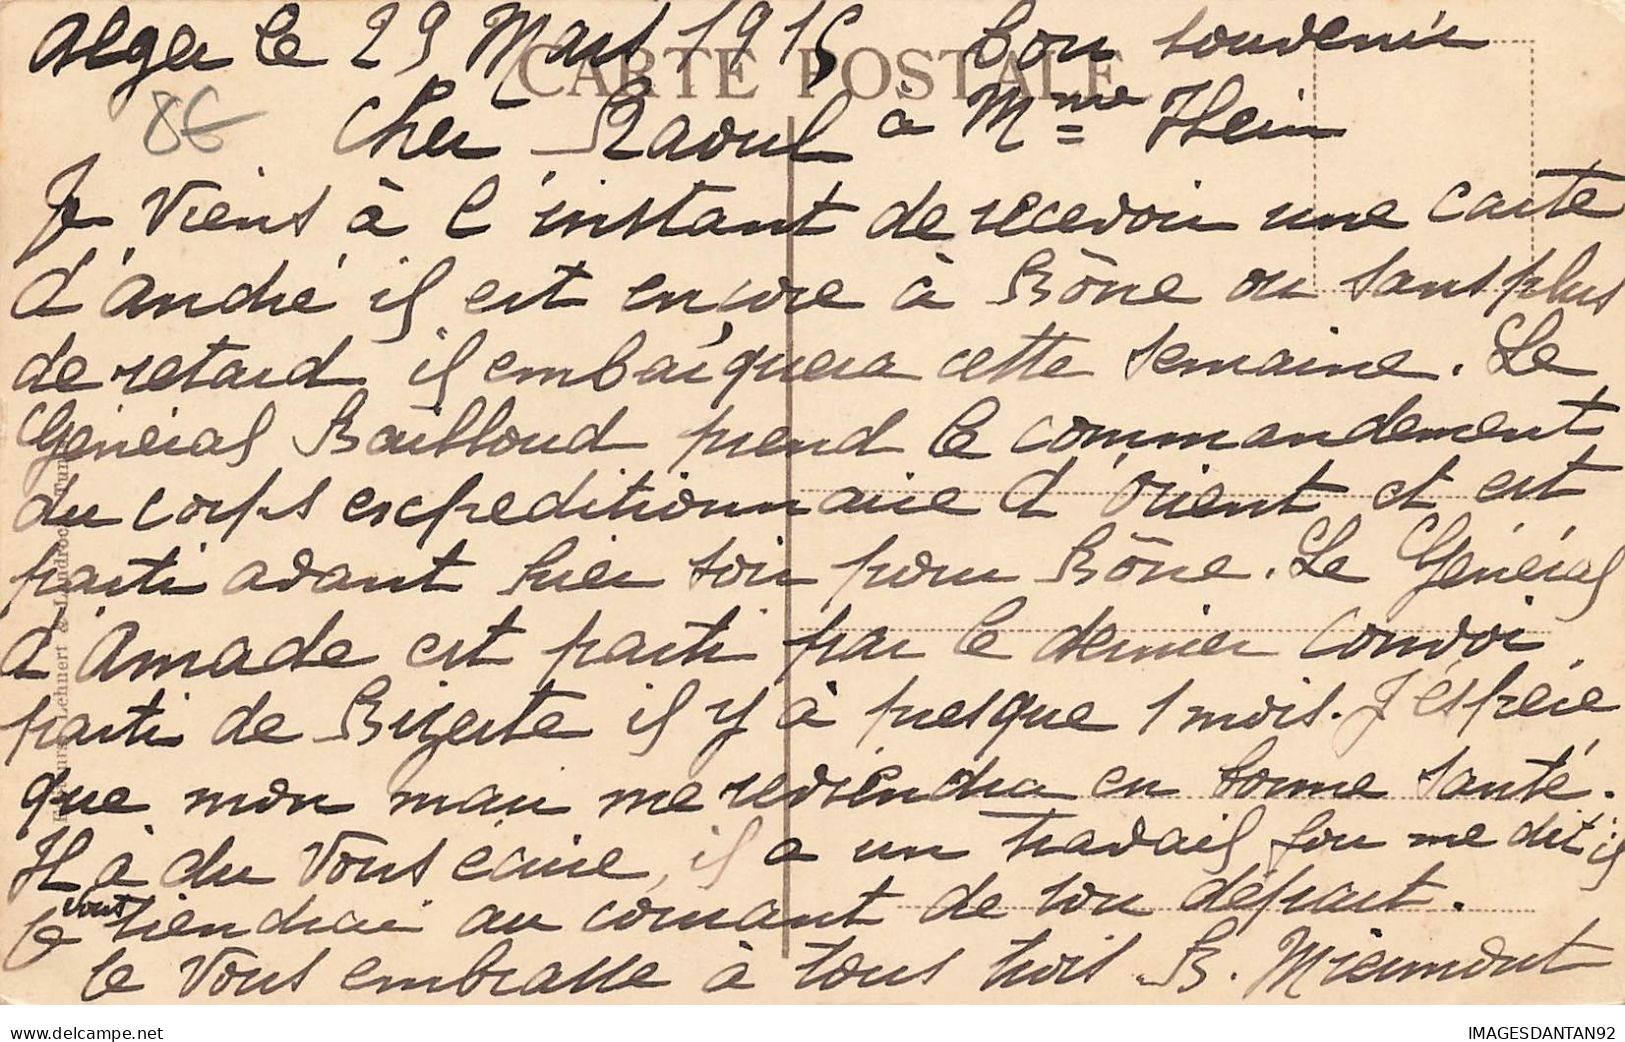 Alger le 29 Mars 1915 Bon souvenir
CARTE POSTALE
8€ Cher Raoul à Mme Hein
Je viens à l'instant de recevoir une carte
d'andré il est encore à Bône ou sans plus
de retard il embarquera cette semaine. Le
Général Bailloud prend le commandement
du corps expeditionnaire d'Orient et est
parti avant hier soir pour Bône. Le Général
d'Amade est parti par le dernier convoi
parti de Bizerte il y à presque 1 mois. J'espère
que mon mari me reviendra en bonne santé.
Il à du vous écrire, il a un travail fou me dit il
Je vous tiendrai au courant de son départ.
Je vous embrasse à tous trois B. Miermont
Lehnert & Landrock Tunis
IMAGESDANTAN92
delcampe.net